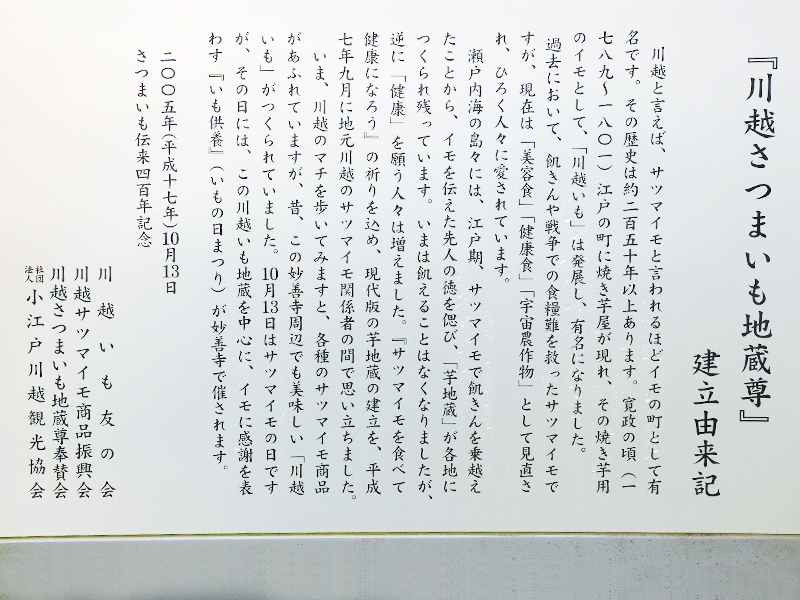 『川越さつまいも地蔵尊』
建立由来記
川越と言えば、サツマイモと言われるほどイモの町として有
名です。その歴史は約二百五十年以上あります。寛政の頃（一
七八九〜一八〇一）江戸の町に焼き芋屋が現れ、その焼き芋用
のイモとして、「川越いも」は発展し、有名になりました。
過去において、飢きんや戦争での食糧難を救ったサツマイモで
すが、現在は「美容食」「健康食」「宇宙農作物」として見直さ
れ、ひろく人々に愛されています。
瀬戸内海の島々には、江戸期、サツマイモで飢きんを乗越え
たことから、イモを伝えた先人の徳を偲び、「芋地蔵」が各地に
つくられ残っています。いまは飢えることはなくなりましたが、
逆に「健康」を願う人々は増えました。『サツマイモを食べて
健康になろう』の祈りを込め、現代版の芋地蔵の建立を、平成
七年九月に地元川越のサツマイモ関係者の間で思い立ちました。
いま、川越のマチを歩いてみますと、各種のサツマイモ商品
があふれていますが、昔、この妙善寺周辺でも美味しい「川越
いも」がつくられていました。10月13日はサツマイモの日です
が、その日には、この川越いも地蔵を中心に、イモに感謝を表
わす『いも供養』（いもの日まつり）が妙善寺で催されます。
二〇〇五年(平成十七年)10月13日
さつまいも伝来四百年記念
川越いも友の会
川越サツマイモ商品振興会
川越さつまいも地蔵尊奉賛会
社団法人 小江戸川越観光協会